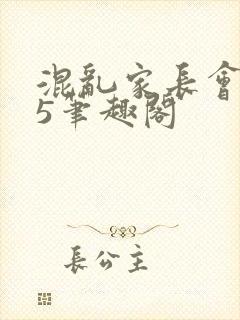 混亂家長會
5筆趣閣
長公主